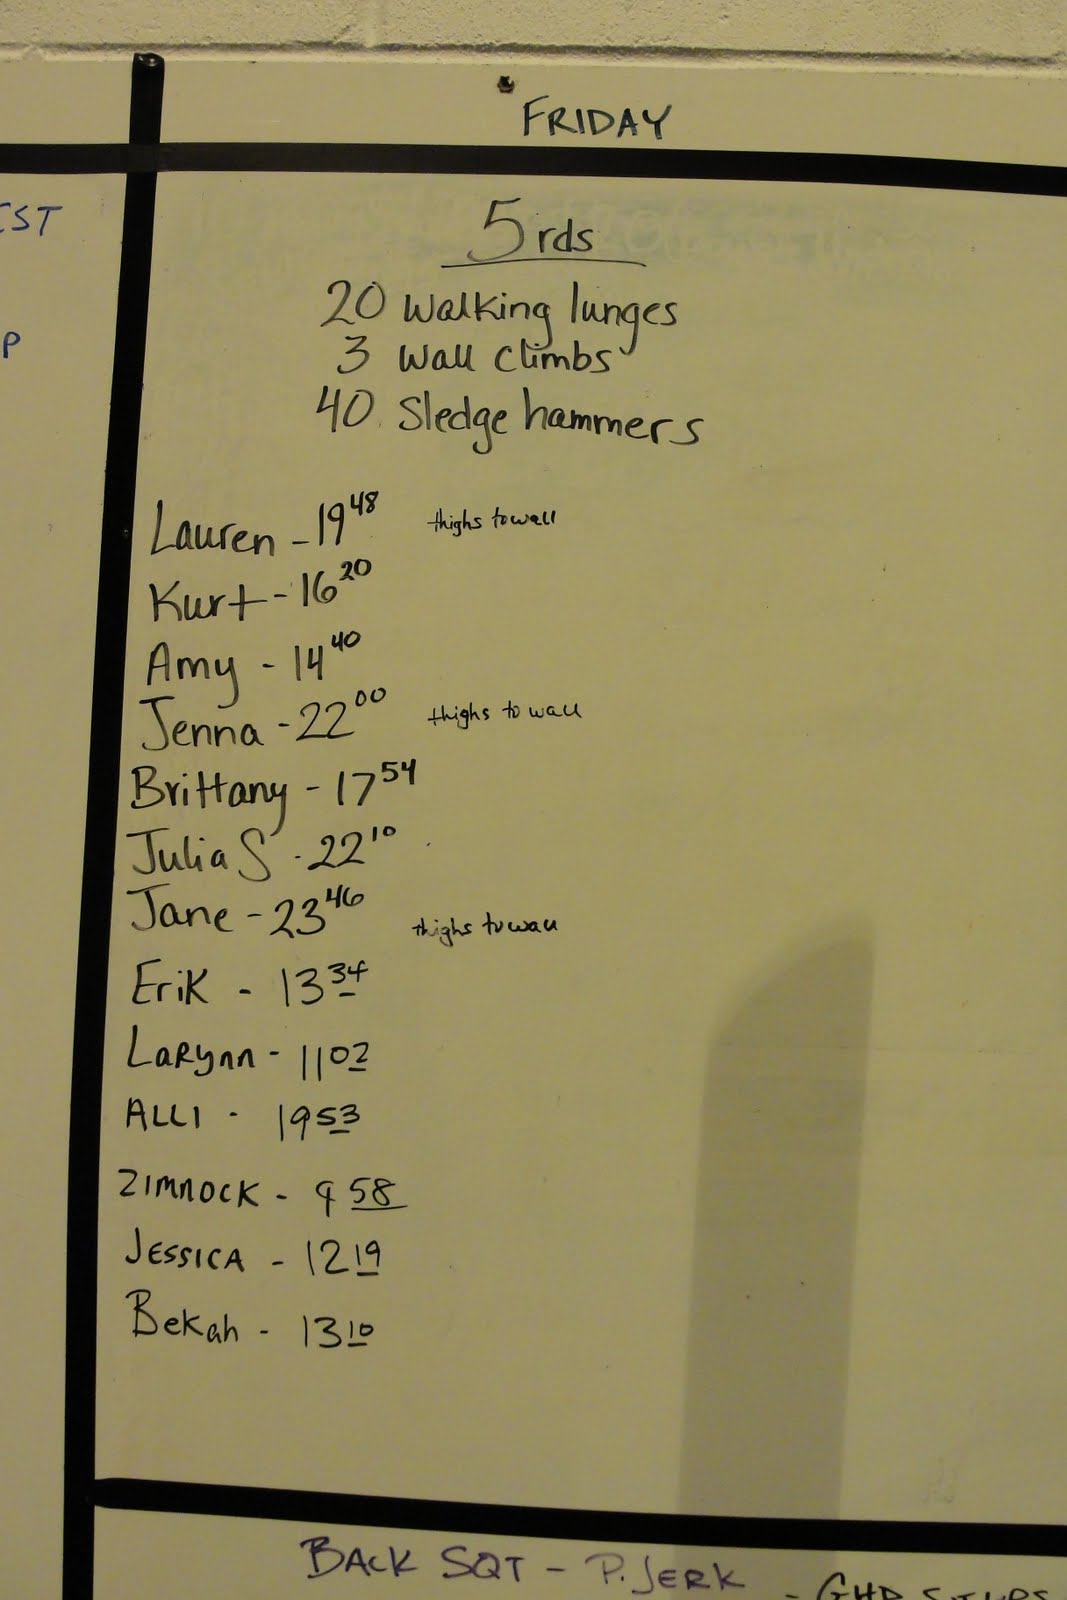 FRIDAY
5 rds
20 Walking lunges
3 Wall Climbs
40 Sledge hammers
Lauren - 19 48 thighs to wall
Kurt - 16 20
Amy - 14 40
Jenna - 22 00 thighs to wall
Brittany - 17 54
Julia S - 22 10
Jane - 23 46 thighs to wall
Erik - 13 34
LaRynn - 11 02
ALLI - 19 53
ZIMNOCK - 9 58
JESSICA - 12 19
Bekah - 13 10
BACK SQT - P. JERK - GHD